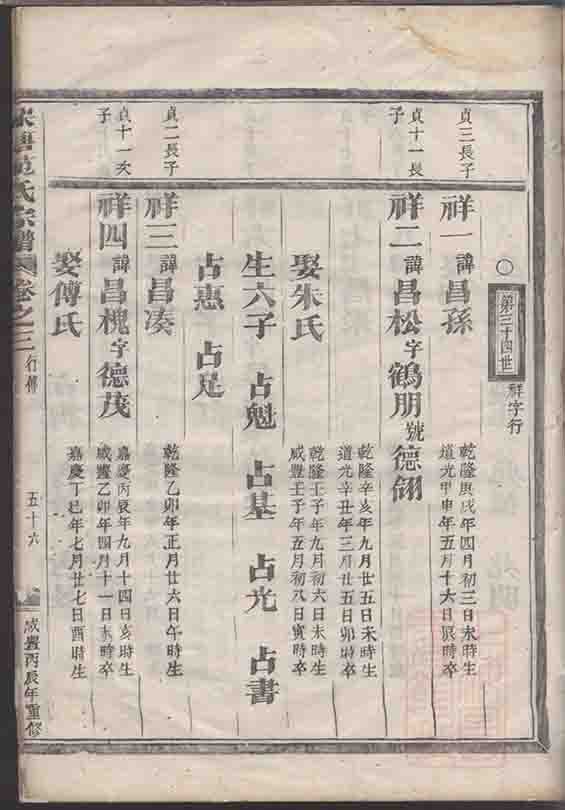 第三十四世 祥字行
貞三長子
祥一諱昌孫
乾隆庚戌年四月初三日未時生
道光甲申年五月十六日辰時卒
貞十一長子
祥二諱昌松字鶴朋號德翎
乾隆辛亥年九月廿五日未時生
道光辛丑年三月廿五日卯時卒
娶朱氏
乾隆壬子年九月初六日未時生
咸豐壬子年五月初八日寅時卒
生六子 占魁 占基 占光 占書
占惠 占足
貞二長子
祥三諱昌凑
乾隆乙卯年正月廿六日午時生
貞十一次子
祥四諱昌槐字德茂
嘉慶丙辰年九月十四日亥時生
咸豐乙卯年四月十一日未時卒
娶傅氏
嘉慶丁巳年七月廿七日酉時生
范氏宗譜 卷之三 行傳 五十六 咸豐丙辰年重修